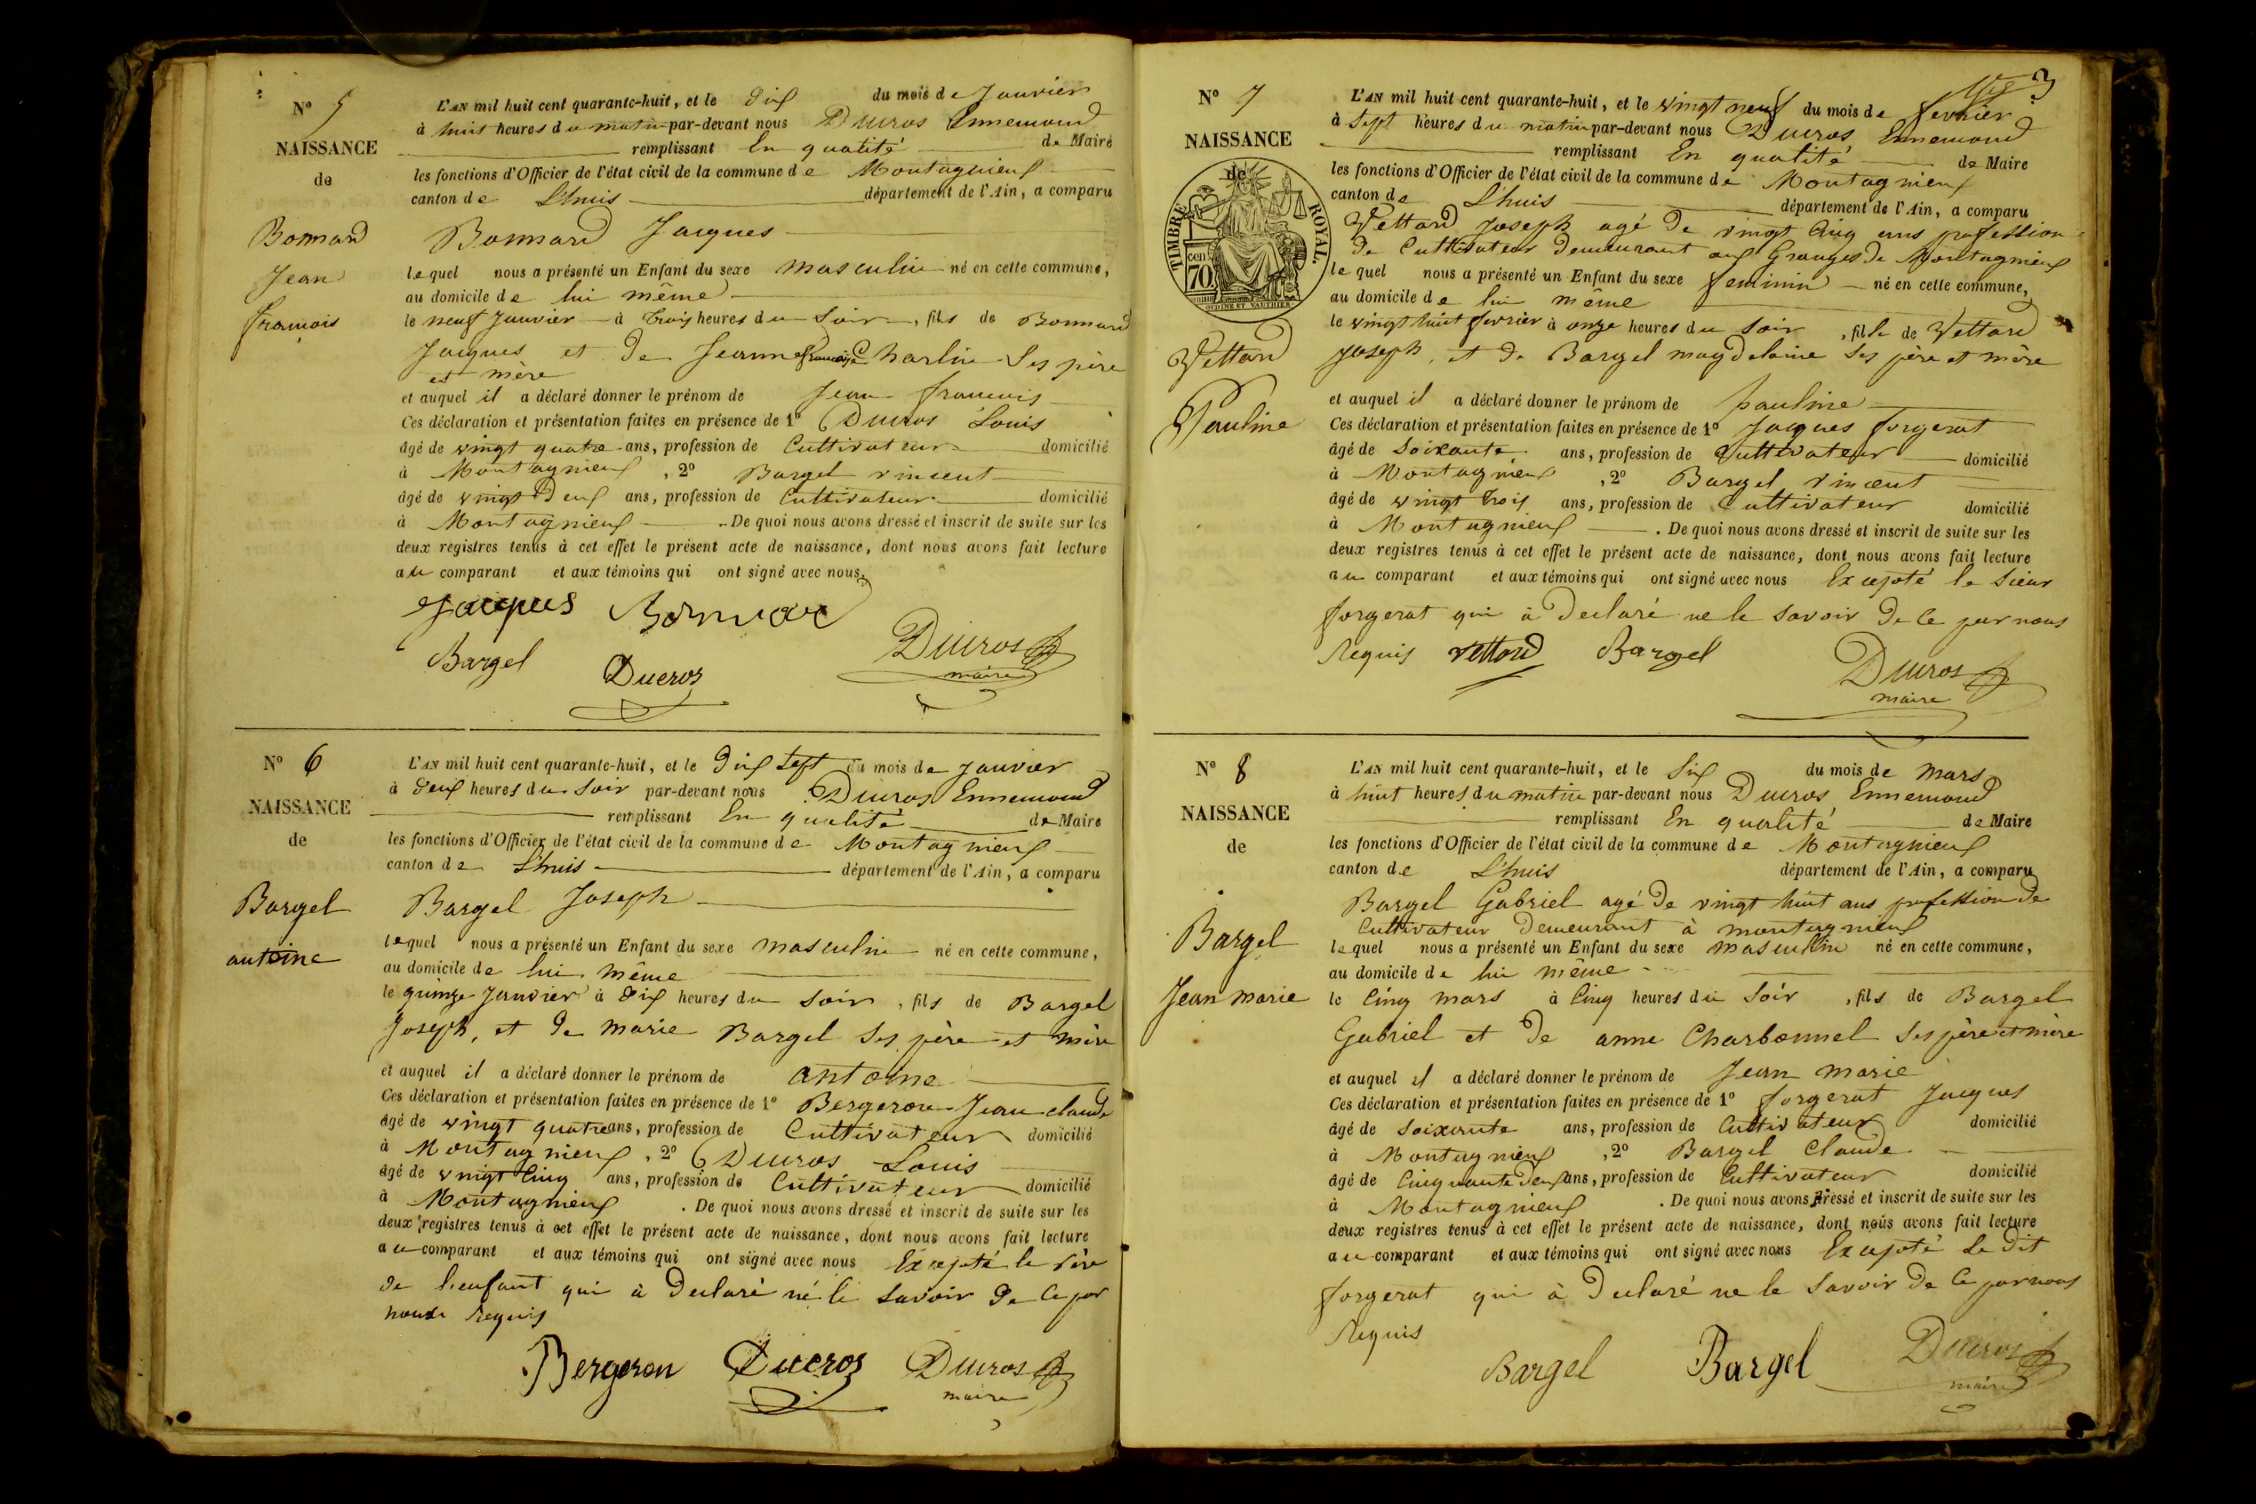 N° 5
NAISSANCE
de
Bonnard
Jean
françois
L'AN mil huit cent quarante-huit, et le Dix du mois de Janvier
à huit heures du matin par-devant nous Ducros Ennemond
remplissant En qualité de Maire
les fonctions d'Officier de l'état civil de la commune de Montagnieux
canton de L'huis département de l'Ain, a comparu
Bonnard Jacques
lequel nous a présenté un Enfant du sexe masculin né en cette commune,
au domicile de lui même
le neuf Janvier à trois heures du soir, fils de Bonnard
Jacques et de Jeanne françoise Charlin Ses père
et mère
et auquel il a déclaré donner le prénom de Jean francois
Ces déclaration et présentation faites en présence de 1° Ducros Louis
âgé de vingt quatre ans, profession de Cultivateur domicilié
à Montagnieux, 2° Bargel vincent
âgé de vingt Deux ans, profession de Cultivateur domicilié
à Montagnieux. De quoi nous avons dressé et inscrit de suite sur les
deux registres tenus à cet effet le présent acte de naissance, dont nous avons fait lecture
au comparant et aux témoins qui ont signé avec nous.
Jacques Bonnard
Bargel Ducros Ducros
maire
N° 6
NAISSANCE
de
Bargel
antoine
L'AN mil huit cent quarante-huit, et le Dix Sept du mois de Janvier
à deux heures du soir par-devant nous Ducros Ennemond
remplissant En qualité de Maire
les fonctions d'Officier de l'état civil de la commune de Montagnieux
canton de L'huis département de l'Ain, a comparu
Bargel Joseph
lequel nous a présenté un Enfant du sexe masculin né en cette commune,
au domicile de lui même
le quinze Janvier à dix heures du soir, fils de Bargel
Joseph, et de marie Bargel Ses père et mère
et auquel il a déclaré donner le prénom de antoine
Ces déclaration et présentation faites en présence de 1° Bergeron Jean claude
âgé de vingt quatre ans, profession de Cultivateur domicilié
à Montagnieux, 2° Ducros Louis
âgé de vingt Cinq ans, profession de Cultivateur domicilié
à Montagnieux. De quoi nous avons dressé et inscrit de suite sur les
deux registres tenus à cet effet le présent acte de naissance, dont nous avons fait lecture
au comparant et aux témoins qui ont signé avec nous Excepté le père
de l'enfant qui à Declaré né le savoir de Ce par
nous Requis
Bergeron Ducros Ducros
maire
3
N° 7
NAISSANCE
de
TIMBRE ROYAL.
cen 70
Vettard
Pauline
L'AN mil huit cent quarante-huit, et le vingt neuf du mois de fevrier
à Sept heures du matin par-devant nous Ducros Ennemond
remplissant En qualité de Maire
les fonctions d'Officier de l'état civil de la commune de Montagnieux
canton de L'huis département de l'Ain, a comparu
Vettard Joseph agé de vingt Cinq ans profession
de Cultivateur Demeurant aux Granges De Montagnieux
lequel nous a présenté un Enfant du sexe feminin né en cette commune,
au domicile de lui même
le vingt huit fevrier à onze heures du soir, fille de Vettard
Joseph, et de Bargel magdelaine Ses père et mère
et auquel il a déclaré donner le prénom de pauline
Ces déclaration et présentation faites en présence de 1° Jacques forgerat
âgé de Soixante ans, profession de Cultivateur domicilié
à Montagnieux, 2° Bargel vincent
âgé de vingt trois ans, profession de Cultivateur domicilié
à Montagnieux. De quoi nous avons dressé et inscrit de suite sur les
deux registres tenus à cet effet le présent acte de naissance, dont nous avons fait lecture
au comparant et aux témoins qui ont signé avec nous Excepté le Sieur
forgerat qui à Declaré ne le savoir De Ce par nous
Requis vettard Bargel Ducros
maire
N° 8
NAISSANCE
de
Bargel
Jean marie
L'AN mil huit cent quarante-huit, et le Six du mois de mars
à huit heures du matin par-devant nous Ducros Ennemond
remplissant En qualité de Maire
les fonctions d'Officier de l'état civil de la commune de Montagnieux
canton de L'huis département de l'Ain, a comparu
Bargel Gabriel agé De vingt huit ans profession De
Cultivateur Demeurant à montagnieux
lequel nous a présenté un Enfant du sexe masculin né en cette commune,
au domicile de lui même
le Cinq mars à Cinq heures du soir, fils de Bargel
Gabriel et De anne Charbonnel Ses père et mère
et auquel il a déclaré donner le prénom de Jean marie
Ces déclaration et présentation faites en présence de 1° forgerat Jacques
âgé de soixante ans, profession de Cultivateur domicilié
à Montagnieux, 2° Bargel Claude
âgé de Cinquante deux ans, profession de Cultivateur domicilié
à Montagnieux. De quoi nous avons dressé et inscrit de suite sur les
deux registres tenus à cet effet le présent acte de naissance, dont nous avons fait lecture
au comparant et aux témoins qui ont signé avec nous Excepté Le Dit
forgerat qui à Declaré ne le Savoir De Ce par nous
Requis
Bargel Bargel Ducros
maire